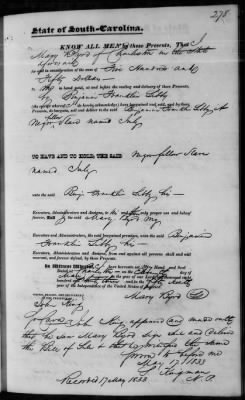 278
State of South-Carolina.
KNOW ALL MEN by these Presents, That I
Mary Byrd of Charleston in the State
aforesaid
for and in consideration of the sum of Two Hundred and
Fifty Dollars
to Me in hand paid, at and before the sealing and delivery of these Presents,
by Benjamin Franklin Libby
(the receipt whereof I do hereby acknowledge) have bargained and sold, and by these
Presents, do bargain, sell and deliver to the said Benjamin Franklin Libby a
Negro Slave named July
TO HAVE AND TO HOLD, THE SAID Negro fellow Slave
named July
unto the said Benj Franklin Libby his
Executors, Administrators and Assigns, to his and their only proper use and behoof
forever. And I the said Mary Byrd my
Executors, Administrators and Assigns, the said bargained premises unto the said Benjamin
Franklin Libby his
Executors, Administrators and Assigns, from and against all persons shall and will
warrant, and forever defend, by these Presents.
In Witness Whereof, I have hereunto set my Hand and
Seal
Dated at Charleston on the
day of in the year of our Lord one thousand eight
hundred and thirty and in the fifty
year of the Independence of the United States of America.
SIGNED, SEALED, AND DELIVERED
IN THE PRESENCE OF
Mary Byrd
John King
John King appeared and made oath
that he saw Mary Byrd sign seal and deliver
the Bill of Sale & that he witnessed the same
Sworn to before me
May 1833
Kingman
Recorded 17 May 1833